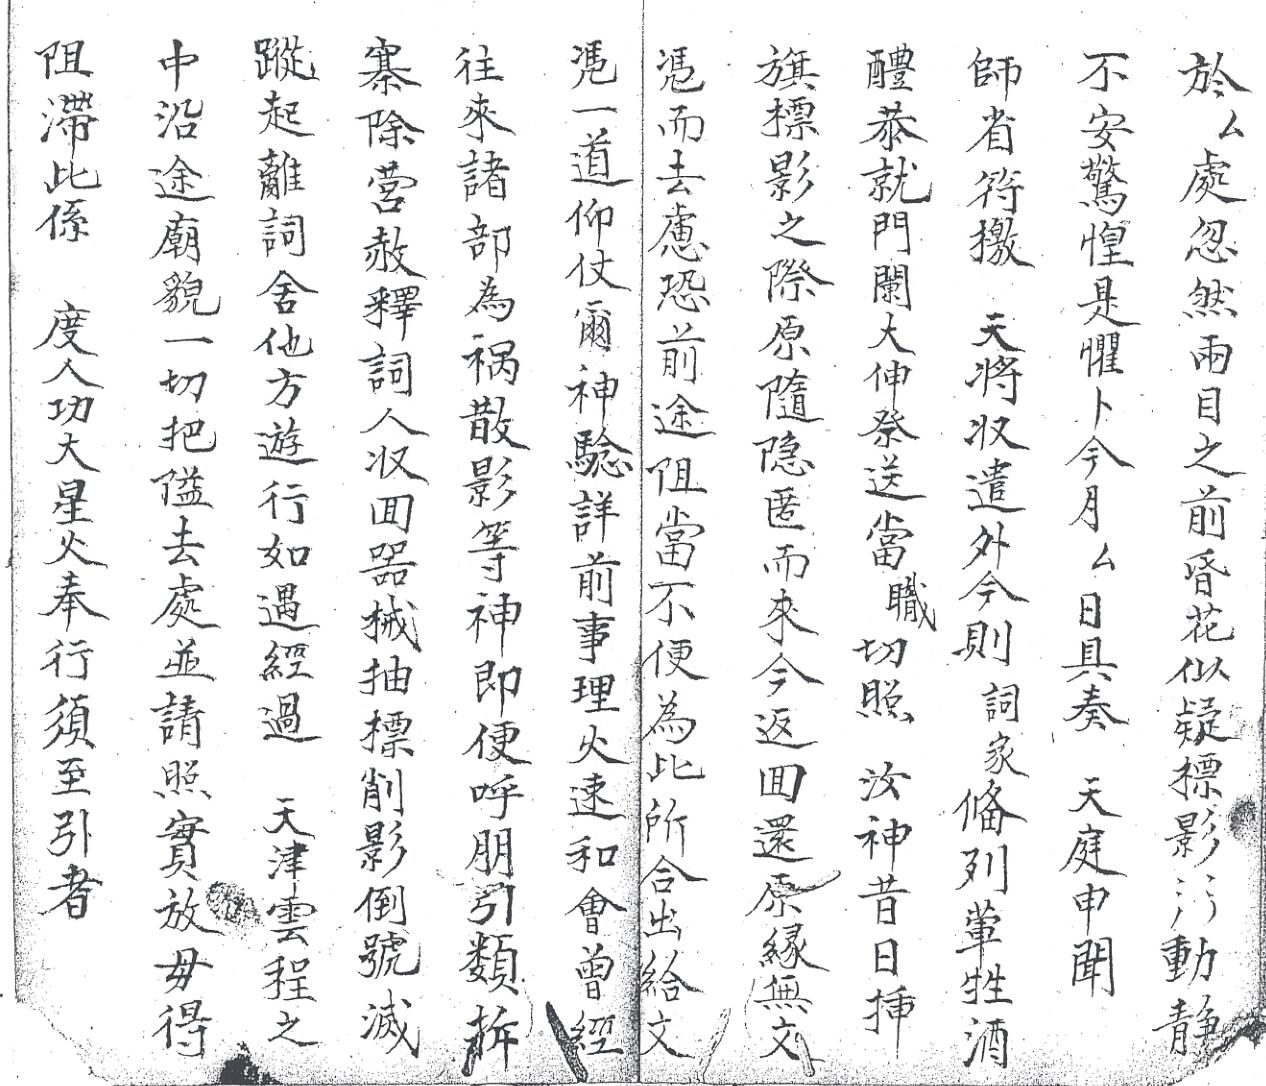 於厶處忽然兩目之前昏花似疑標影污動靜
不安驚惶是懼卜今月厶日具奏 天庭申聞
師省符檄 天將収遣外今則 詞家俻列葷牲酒
醴恭就門闌大伸祭送當職切照 汝神昔日挿
旗標影之際原隨隐匿而來今返囬還原縁無文
凴而去慮恐前途阻當不便為此所合出給文
凴一道仰仗爾神騐詳前事理火速和會曾經
往來諸部為禍散影等神即便呼朋引類拆
寨除营赦釋詞人収囬器械抽標削影倒號滅
蹤起離詞舍他方遊行如遇經過 天津雲程之
中沿途廟貌一切把隘去處並請照實放毋得
阻滯此係 度人功大星火奉行須至引者